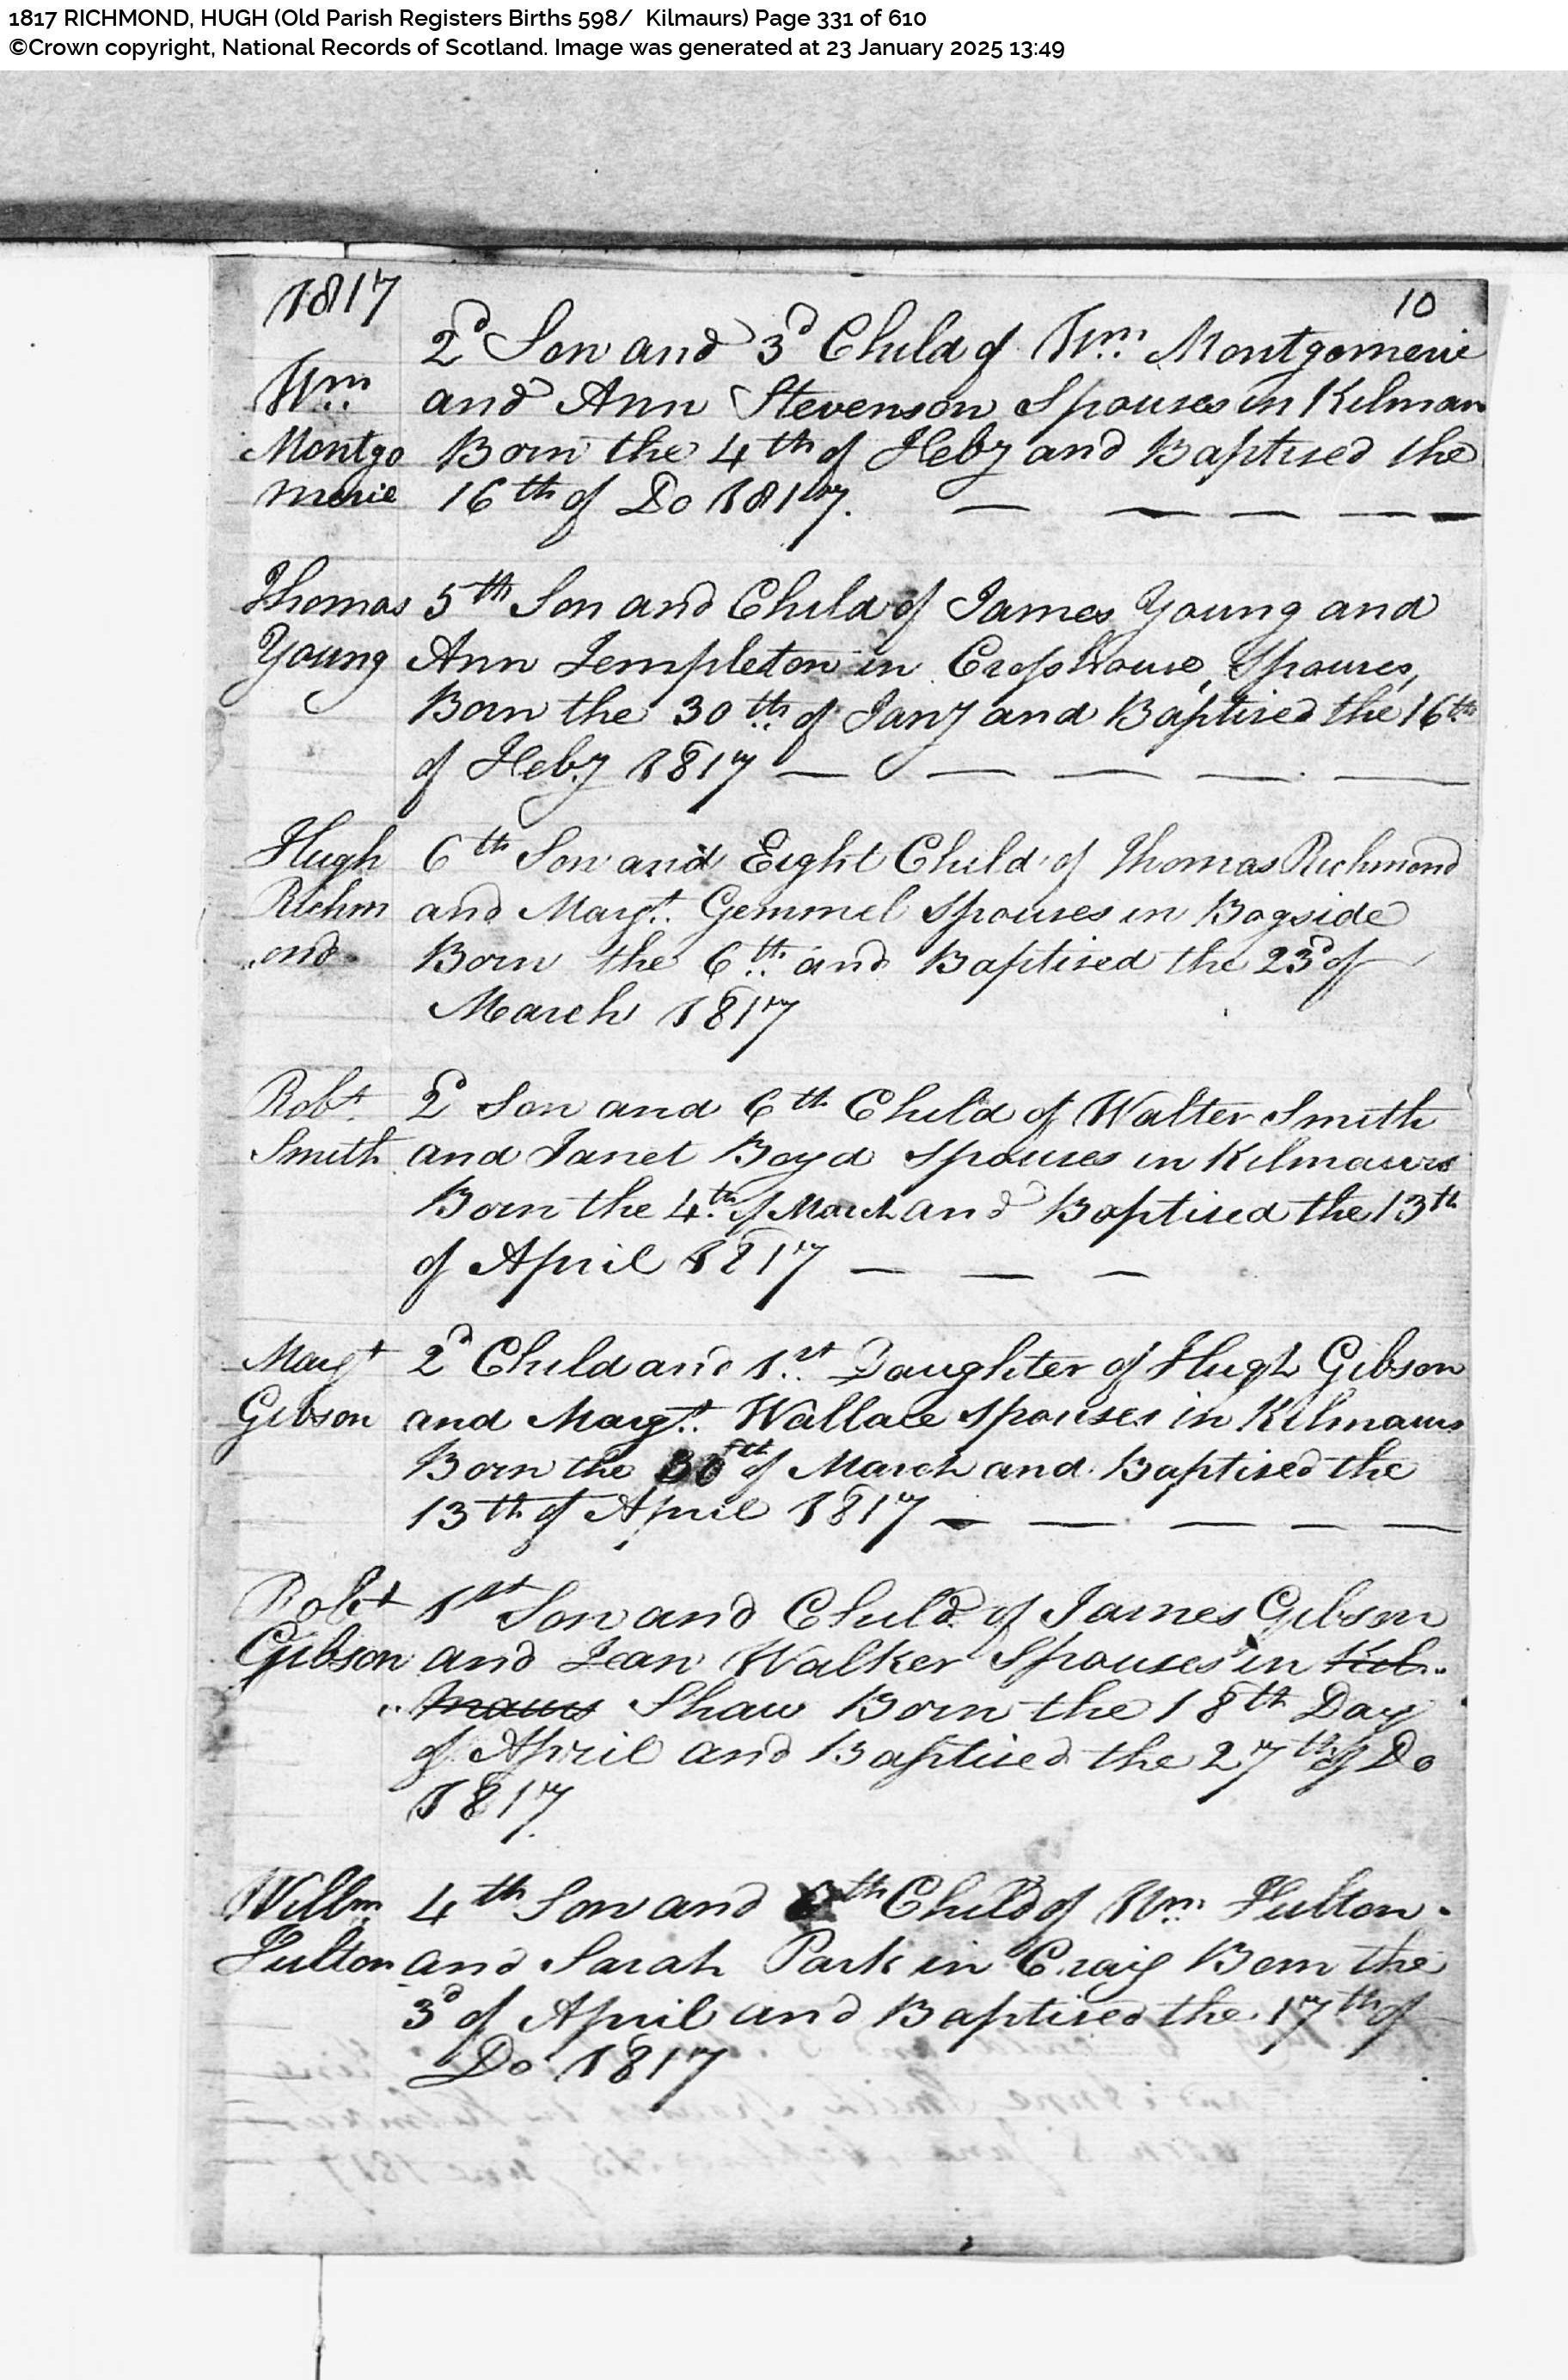 1817 RICHMOND, HUGH (Old Parish Registers Births 598/ Kilmaurs) Page 331 of 610
©Crown copyright, National Records of Scotland. Image was generated at 23 January 2025 13:49
1817
10
Wm Montgo merie
2d Son and 3d Child of Wm Montgomerie
and Ann Stevenson Spouses in Kilmau
Born the 4th of Feby and Baptised the
16th of Do 1817.
Thomas Young
5th Son and Child of James Young and
Ann Templeton in Crosshouse, Spouses,
Born the 30th of Jany and Baptised the 16th
of Feby 1817
Hugh Richm ond
6th Son and Eight Child of Thomas Richmond
and Margt. Gemmel Spouses in Bogside
Born the 6th and Baptised the 23d of
March 1817
Robt Smith
2d Son and 6th Child of Walter Smith
and Janet Boyd Spouses in Kilmaurs
Born the 4th of March and Baptised the 13th
of April 1817
Margt Gibson
2d Child and 1st Daughter of Hugh Gibson
and Margt. Wallace Spouses in Kilmaurs
Born the 30th of March and Baptised the
13th of April 1817
Robt Gibson
1st Son and Child of James Gibson
and Jean Walker Spouses in Kil
maurs Shaw Born the 18th Day
of April and Baptised the 27th of Do
1817
Willm Fulton
4th Son and 6th Child of Wm Fulton
and Sarah Park in Craig Born the
3d of April and Baptised the 17th of
Do 1817